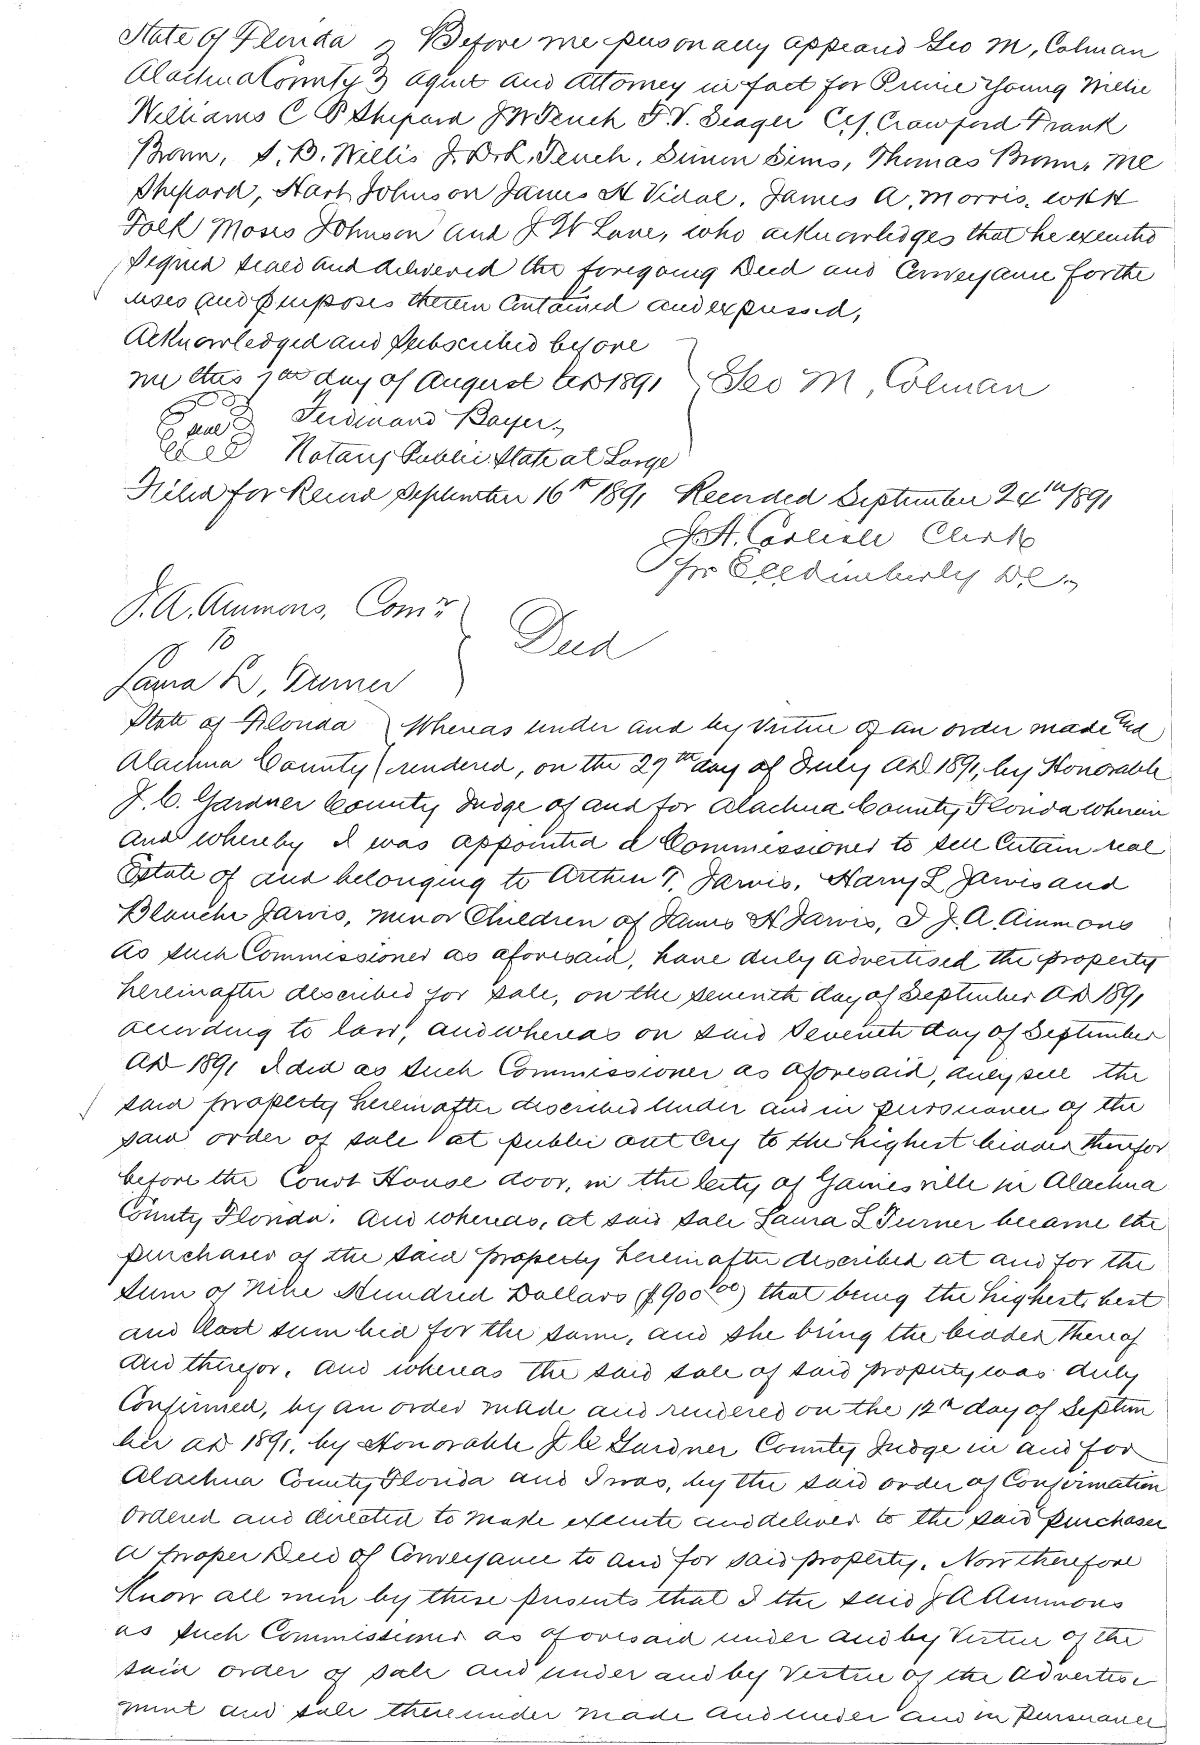 State of Florida } Before me personally appeared Geo M, Colman
Alachua County } agent and Attorney in fact for Young Willie
Williams C P Shepard J W Tench F. V. Seager C. J. Crawford Frank
Brown, S. B. Willis J. D. L. Tench, Simon Sims, Thomas Brown, M C
Shepard, Hart Johnson James H Vidal, James A, Morris, W H H
Folk Moses Johnson and J W Lane, who acknowledges that he executed
signed sealed and delivered the foregoing Deed and Conveyance for the
uses and purposes therein Contained and expressed,
Acknowledged and Subscribed before
me this day of August AD 1891 } Geo M, Colman
seal Ferdinand Bayer,
Notary Public State at Large
Filed for Record September 16th 1891 Recorded September 24th 1891
J. A. Carlisle Clerk
per D.C.,
J. A. Ammons, Comr
To } Deed
Laura L, Turner
State of Florida } Whereas under and by Virtue of an order made and
Alachua County } rendered, on the 29th day of July AD 1891, by Honorable
J. C. Gardner County Judge of and for Alachua County Florida wherein
and whereby I was appointed a Commissioner to sell Certain real
Estate of and belonging to Arthur T. Jarvis, Harry L Jarvis and
Blanche Jarvis, minor Children of James H Jarvis, I J. A. Ammons
as such Commissioner as aforesaid, have duly advertised the property
hereinafter described for sale, on the seventh day of September AD 1891
according to law, and whereas on said Seventh day of September
AD 1891 I did as such Commissioner as aforesaid, duly sell the
said property hereinafter described under and in pursuance of the
said order of sale at public out Cry to the highest bidder therefor
before the Court House door, in the City of Gainesville in Alachua
County Florida. And whereas, at said sale Laura L Turner became the
purchaser of the said property hereinafter described at and for the
sum of Nine Hundred Dollars ($900.00) that being the highest best
and last sum bid for the same, and she being the bidder thereof
and therefor. And whereas the said sale of said property was duly
Confirmed, by an order made and rendered on the 12th day of Septem
ber AD 1891, by Honorable J C Gardner County Judge in and for
Alachua County Florida and I was, by the said order of Confirmation
ordered and directed to make execute and deliver to the said purchaser
a proper Deed of Conveyance to and for said property. Now therefore
Know all men by these presents that I the said J A Ammons
as such Commissioner as aforesaid under and by Virtue of the
said order of sale and under and by Vertue of the advertise
ment and sale thereunder made and under and in pursuance